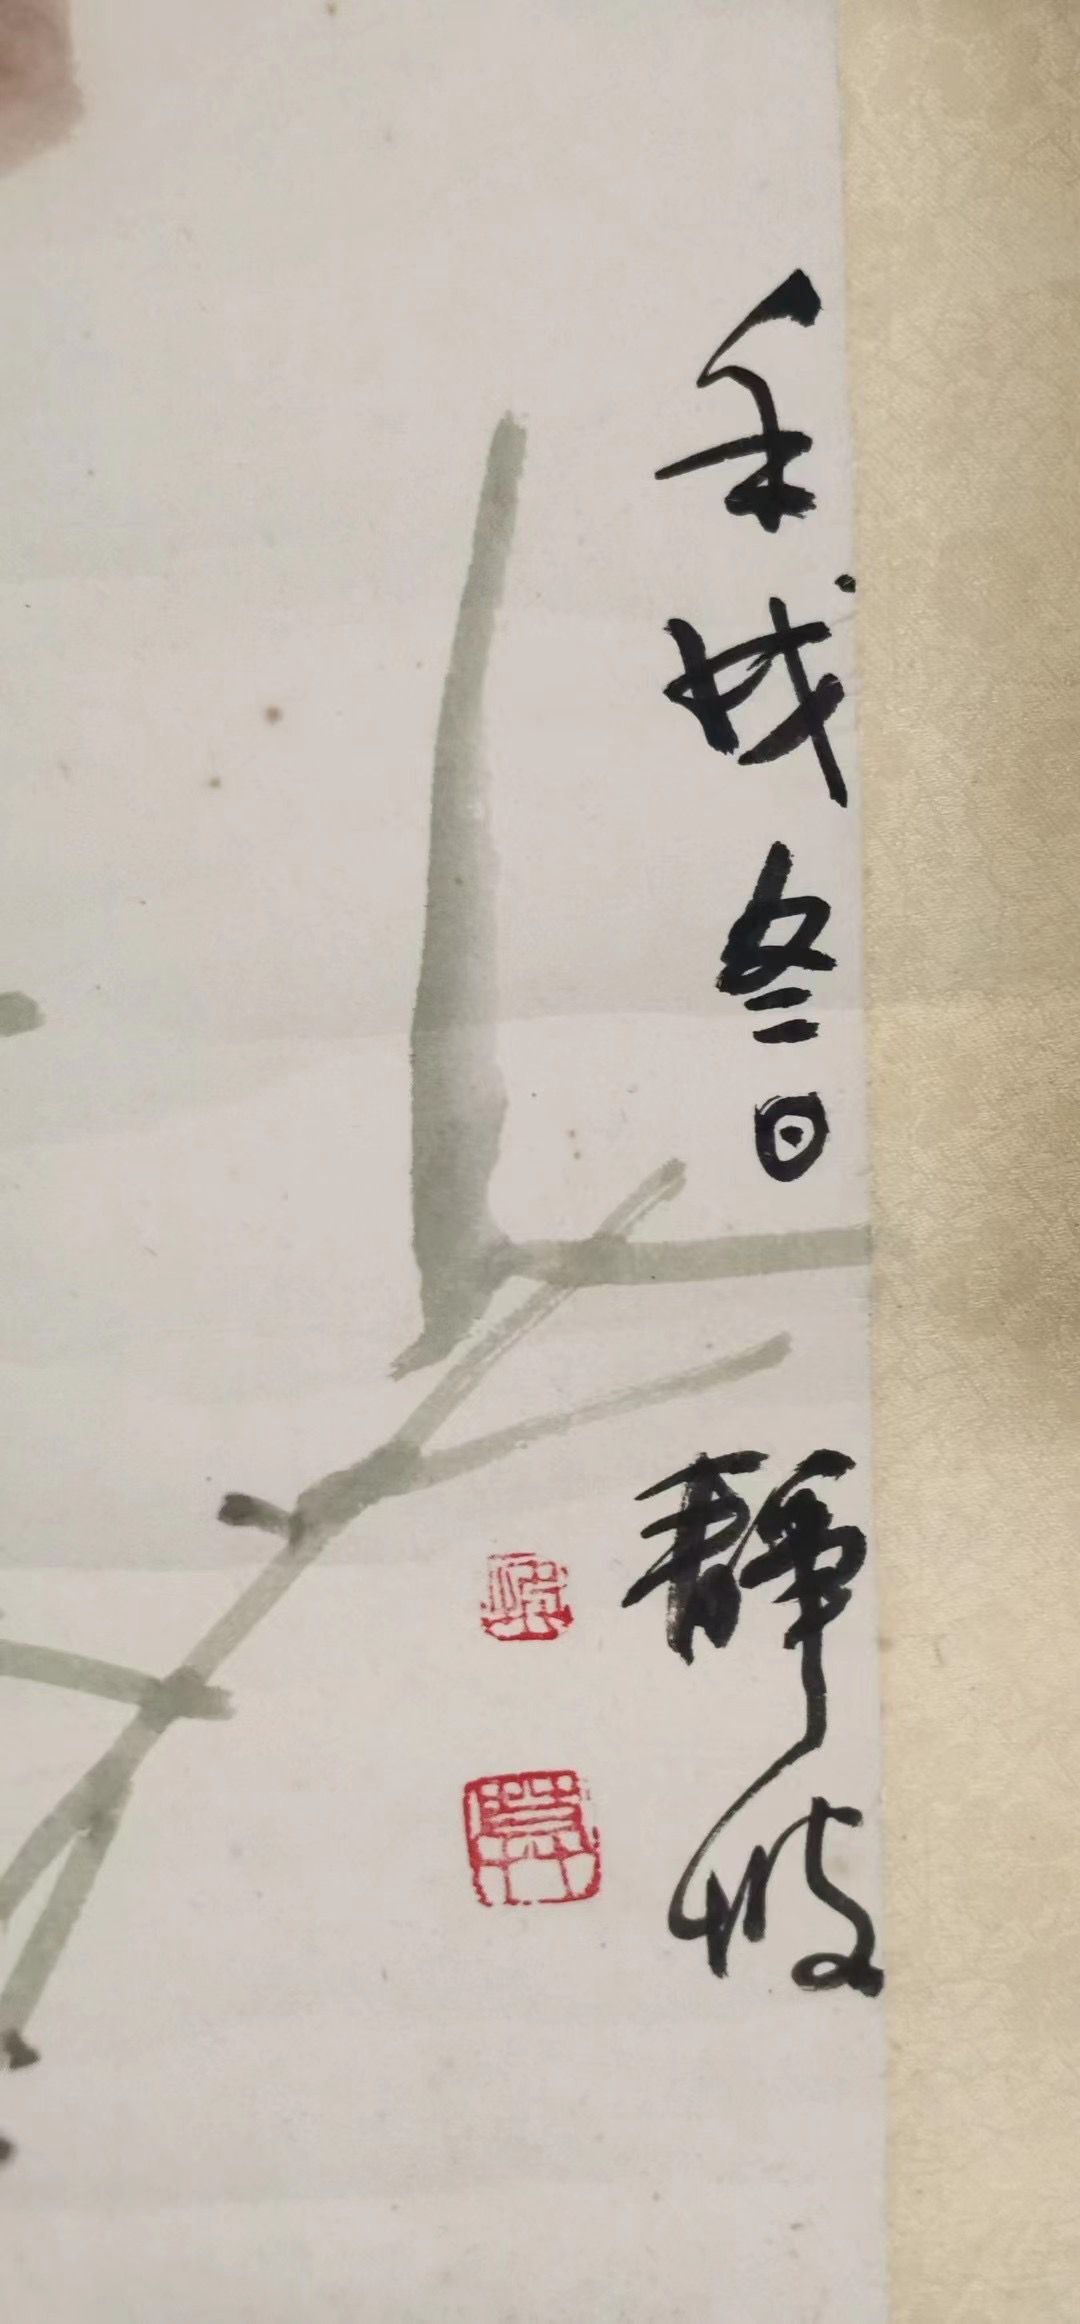 壬戌冬日 静波